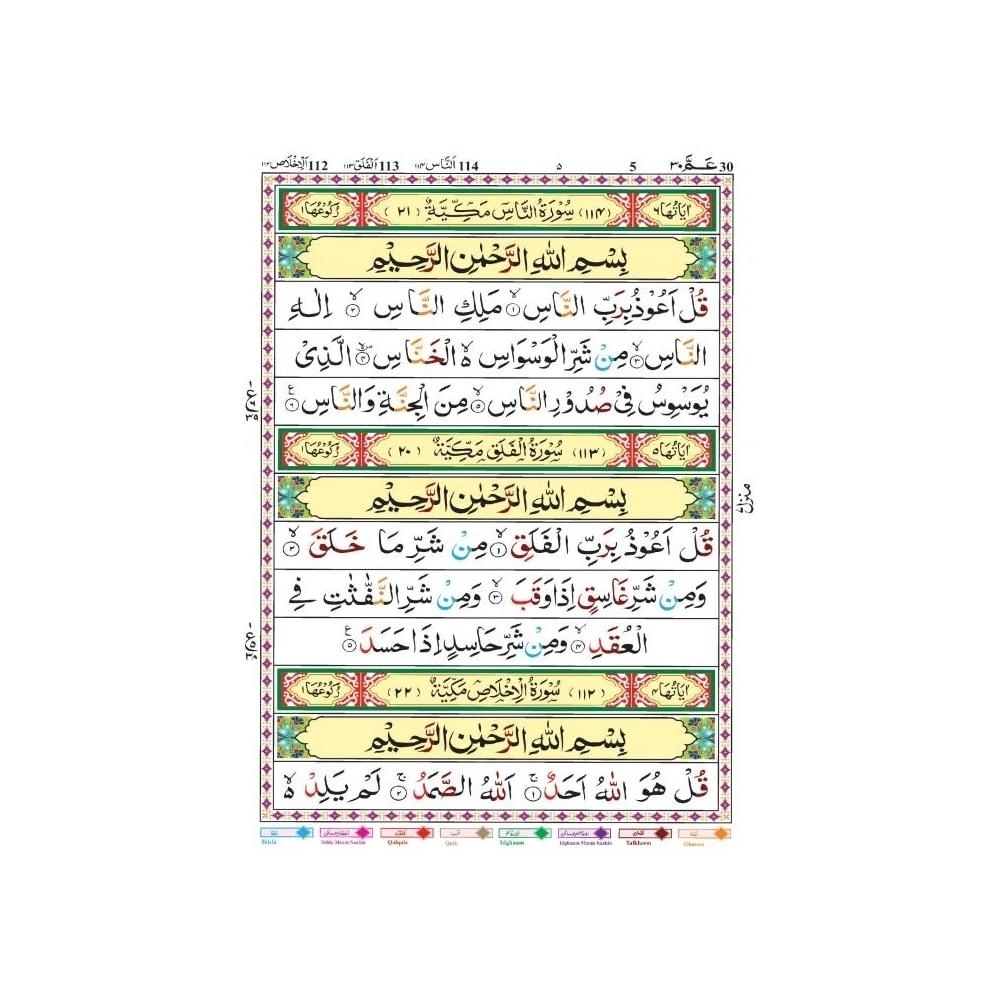 30 عَمَّ ٣٠ 5 ٥ 114 اَلنَّاس ١١٤ 113 اَلْفَلَق ١١٣ 112 اَلْاِخْلَاص ١١٢
اٰيَاتُهَا ٦ (١١٤) سُوْرَةُ النَّاسِ مَكِّيَّةٌ (٢١) رُكُوْعُهَا ١
بِسْمِ اللّٰهِ الرَّحْمٰنِ الرَّحِيْمِ
قُلْ اَعُوْذُ بِرَبِّ النَّاسِ ۙ‏﴿۱﴾ مَلِكِ النَّاسِ ۙ‏﴿۲﴾ اِلٰهِ
النَّاسِ ۙ‏﴿۳﴾ مِنْ شَرِّ الْوَسْوَاسِ ۙ الْخَنَّاسِ ﴿۴﴾ الَّذِىْ
يُوَسْوِسُ فِىْ صُدُوْرِ النَّاسِ ۙ‏﴿۵﴾ مِنَ الْجِنَّةِ وَالنَّاسِ ﴿۶﴾
اٰيَاتُهَا ٥ (١١٣) سُوْرَةُ الْفَلَقِ مَكِّيَّةٌ (٢٠) رُكُوْعُهَا ١
بِسْمِ اللّٰهِ الرَّحْمٰنِ الرَّحِيْمِ
قُلْ اَعُوْذُ بِرَبِّ الْفَلَقِ ۙ‏﴿۱﴾ مِنْ شَرِّ مَا خَلَقَ ۙ‏﴿۲﴾
وَمِنْ شَرِّ غَاسِقٍ اِذَا وَقَبَ ۙ‏﴿۳﴾ وَمِنْ شَرِّ النَّفّٰثٰتِ فِى
الْعُقَدِ ۙ‏﴿۴﴾ وَمِنْ شَرِّ حَاسِدٍ اِذَا حَسَدَ ﴿۵﴾
اٰيَاتُهَا ٤ (١١٢) سُوْرَةُ الْاِخْلَاصِ مَكِّيَّةٌ (٢٢) رُكُوْعُهَا ١
بِسْمِ اللّٰهِ الرَّحْمٰنِ الرَّحِيْمِ
قُلْ هُوَ اللّٰهُ اَحَدٌ ۚ‏﴿۱﴾ اَللّٰهُ الصَّمَدُ ۚ‏﴿۲﴾ لَمْ يَلِدْ ۙ
منزل
Qalqala Qalb Idghaam Idghaam Meem Saakin Tafkheem Ghunna